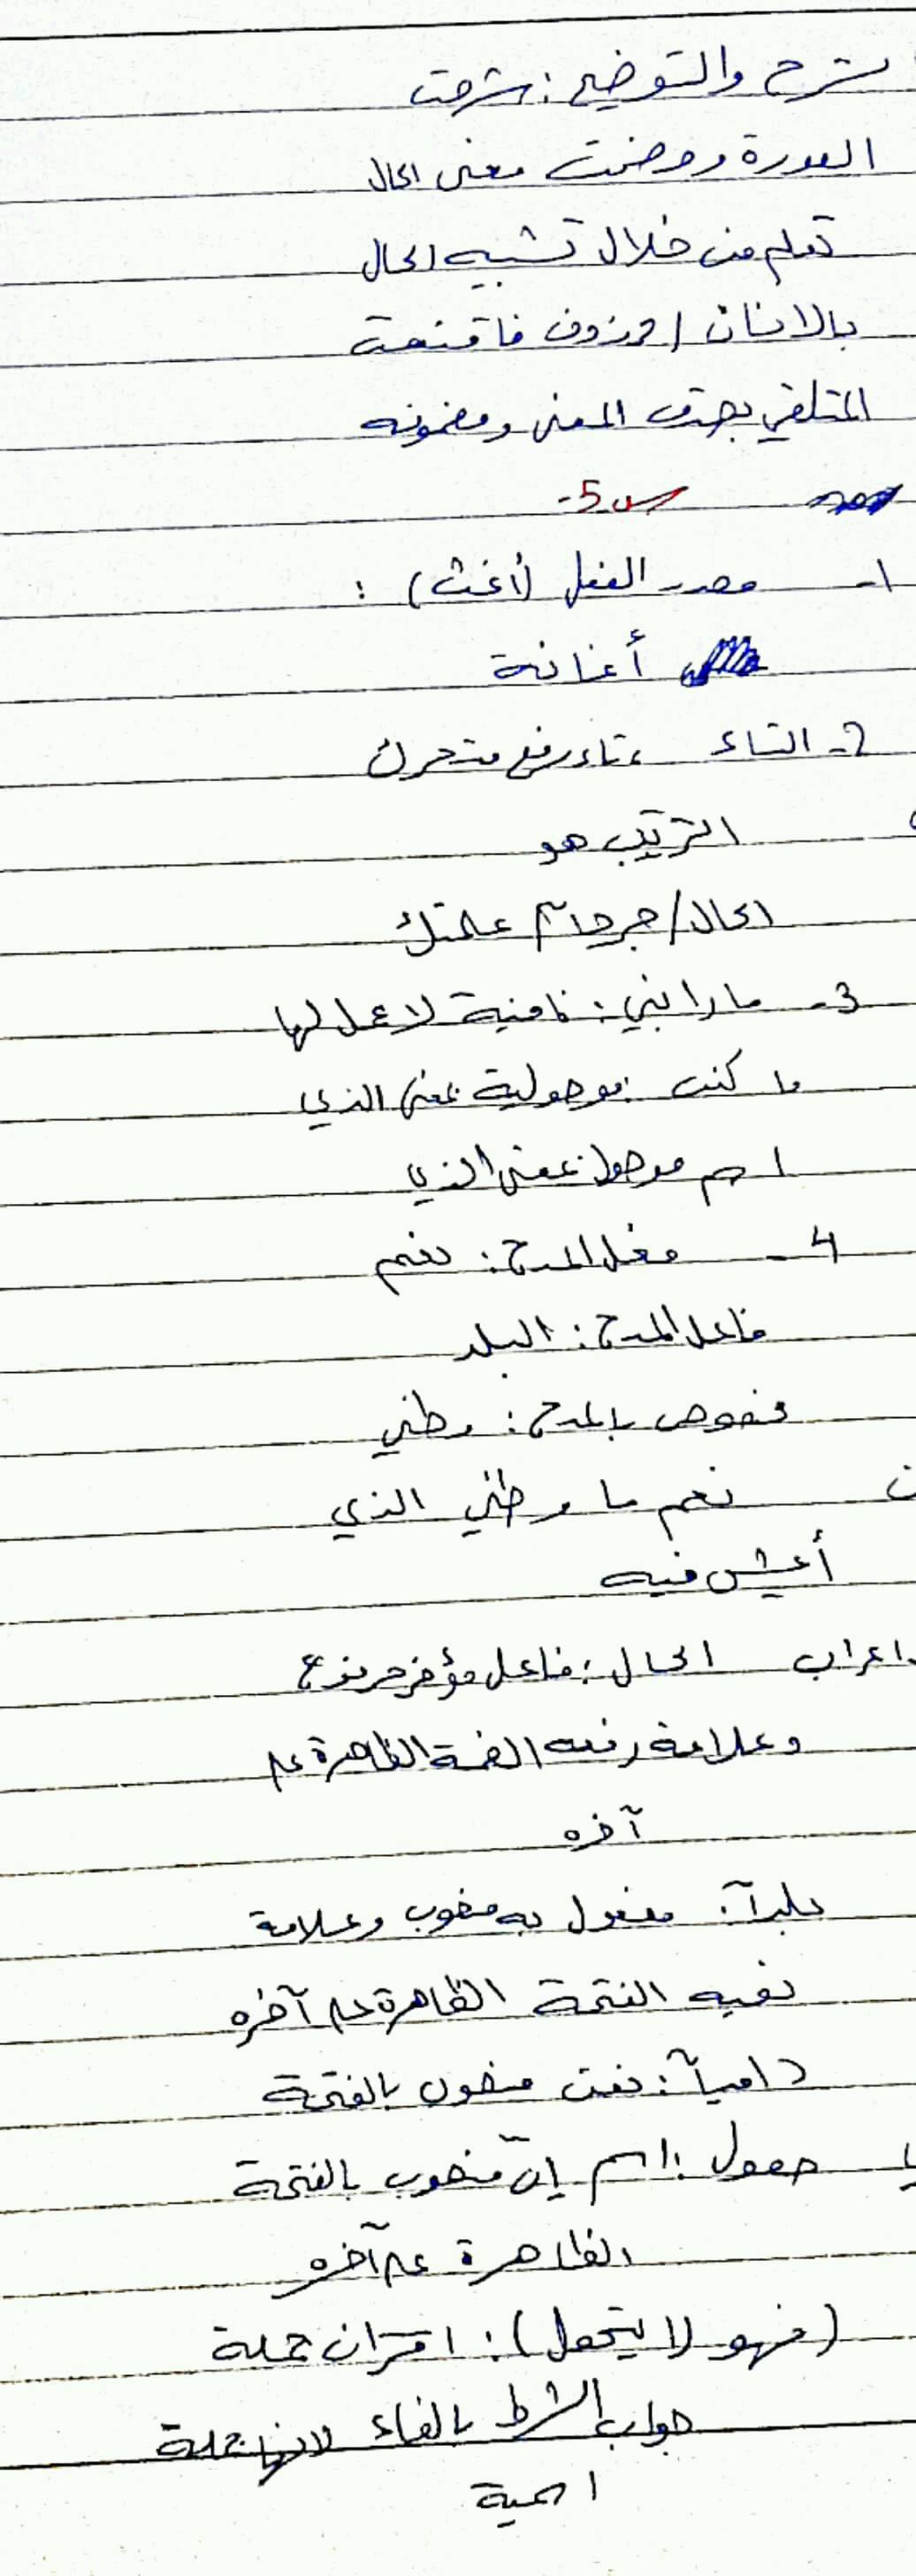 الشرح والتوضيح : شرحت
الصورة ووضحت معنى الحال
تعلم من خلال تشبيه الحال
بالانسان المحزون فاقنعت
المتلقي بصدق المعنى ومضمونه
س5-
1- مصدر الفعل (أغث) :
أغاثة
2- التاء ، تاء رفع متحرك
الترتيب هو
الحال/جرحا/ علمتك
3- ما رابني : نافية لا عمل لها
ما كنت : موصولية بمعنى الذي
اسم موصول بمعنى الذي
4- فعل المدح : نعم
فاعل المدح : البلد
مخصوص بالمدح : وطني
نعم ما وطني الذي
أعيش فيه
اعراب الحال : فاعل مؤخر مرفوع
وعلامة رفعه الضمة الظاهرة على
آخره
بلداً : مفعول به منصوب وعلامة
نصبه الفتحة الظاهرة على آخره
دامياً : نعت منصوب بالفتحة
حمول : اسم إن منصوب بالفتحة
الظاهرة على آخره
(فهو لا يتحول) : اقتران جملة
جواب الشرط بالفاء لانها جملة
اسمية